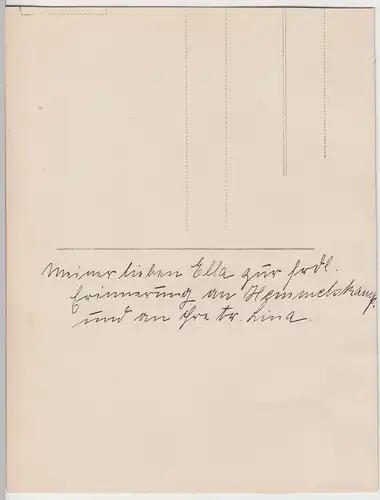 Meiner lieben Ella zur frdl.
Erinnerung an Hemmelskamp.
und an Ihre tr. Lina.